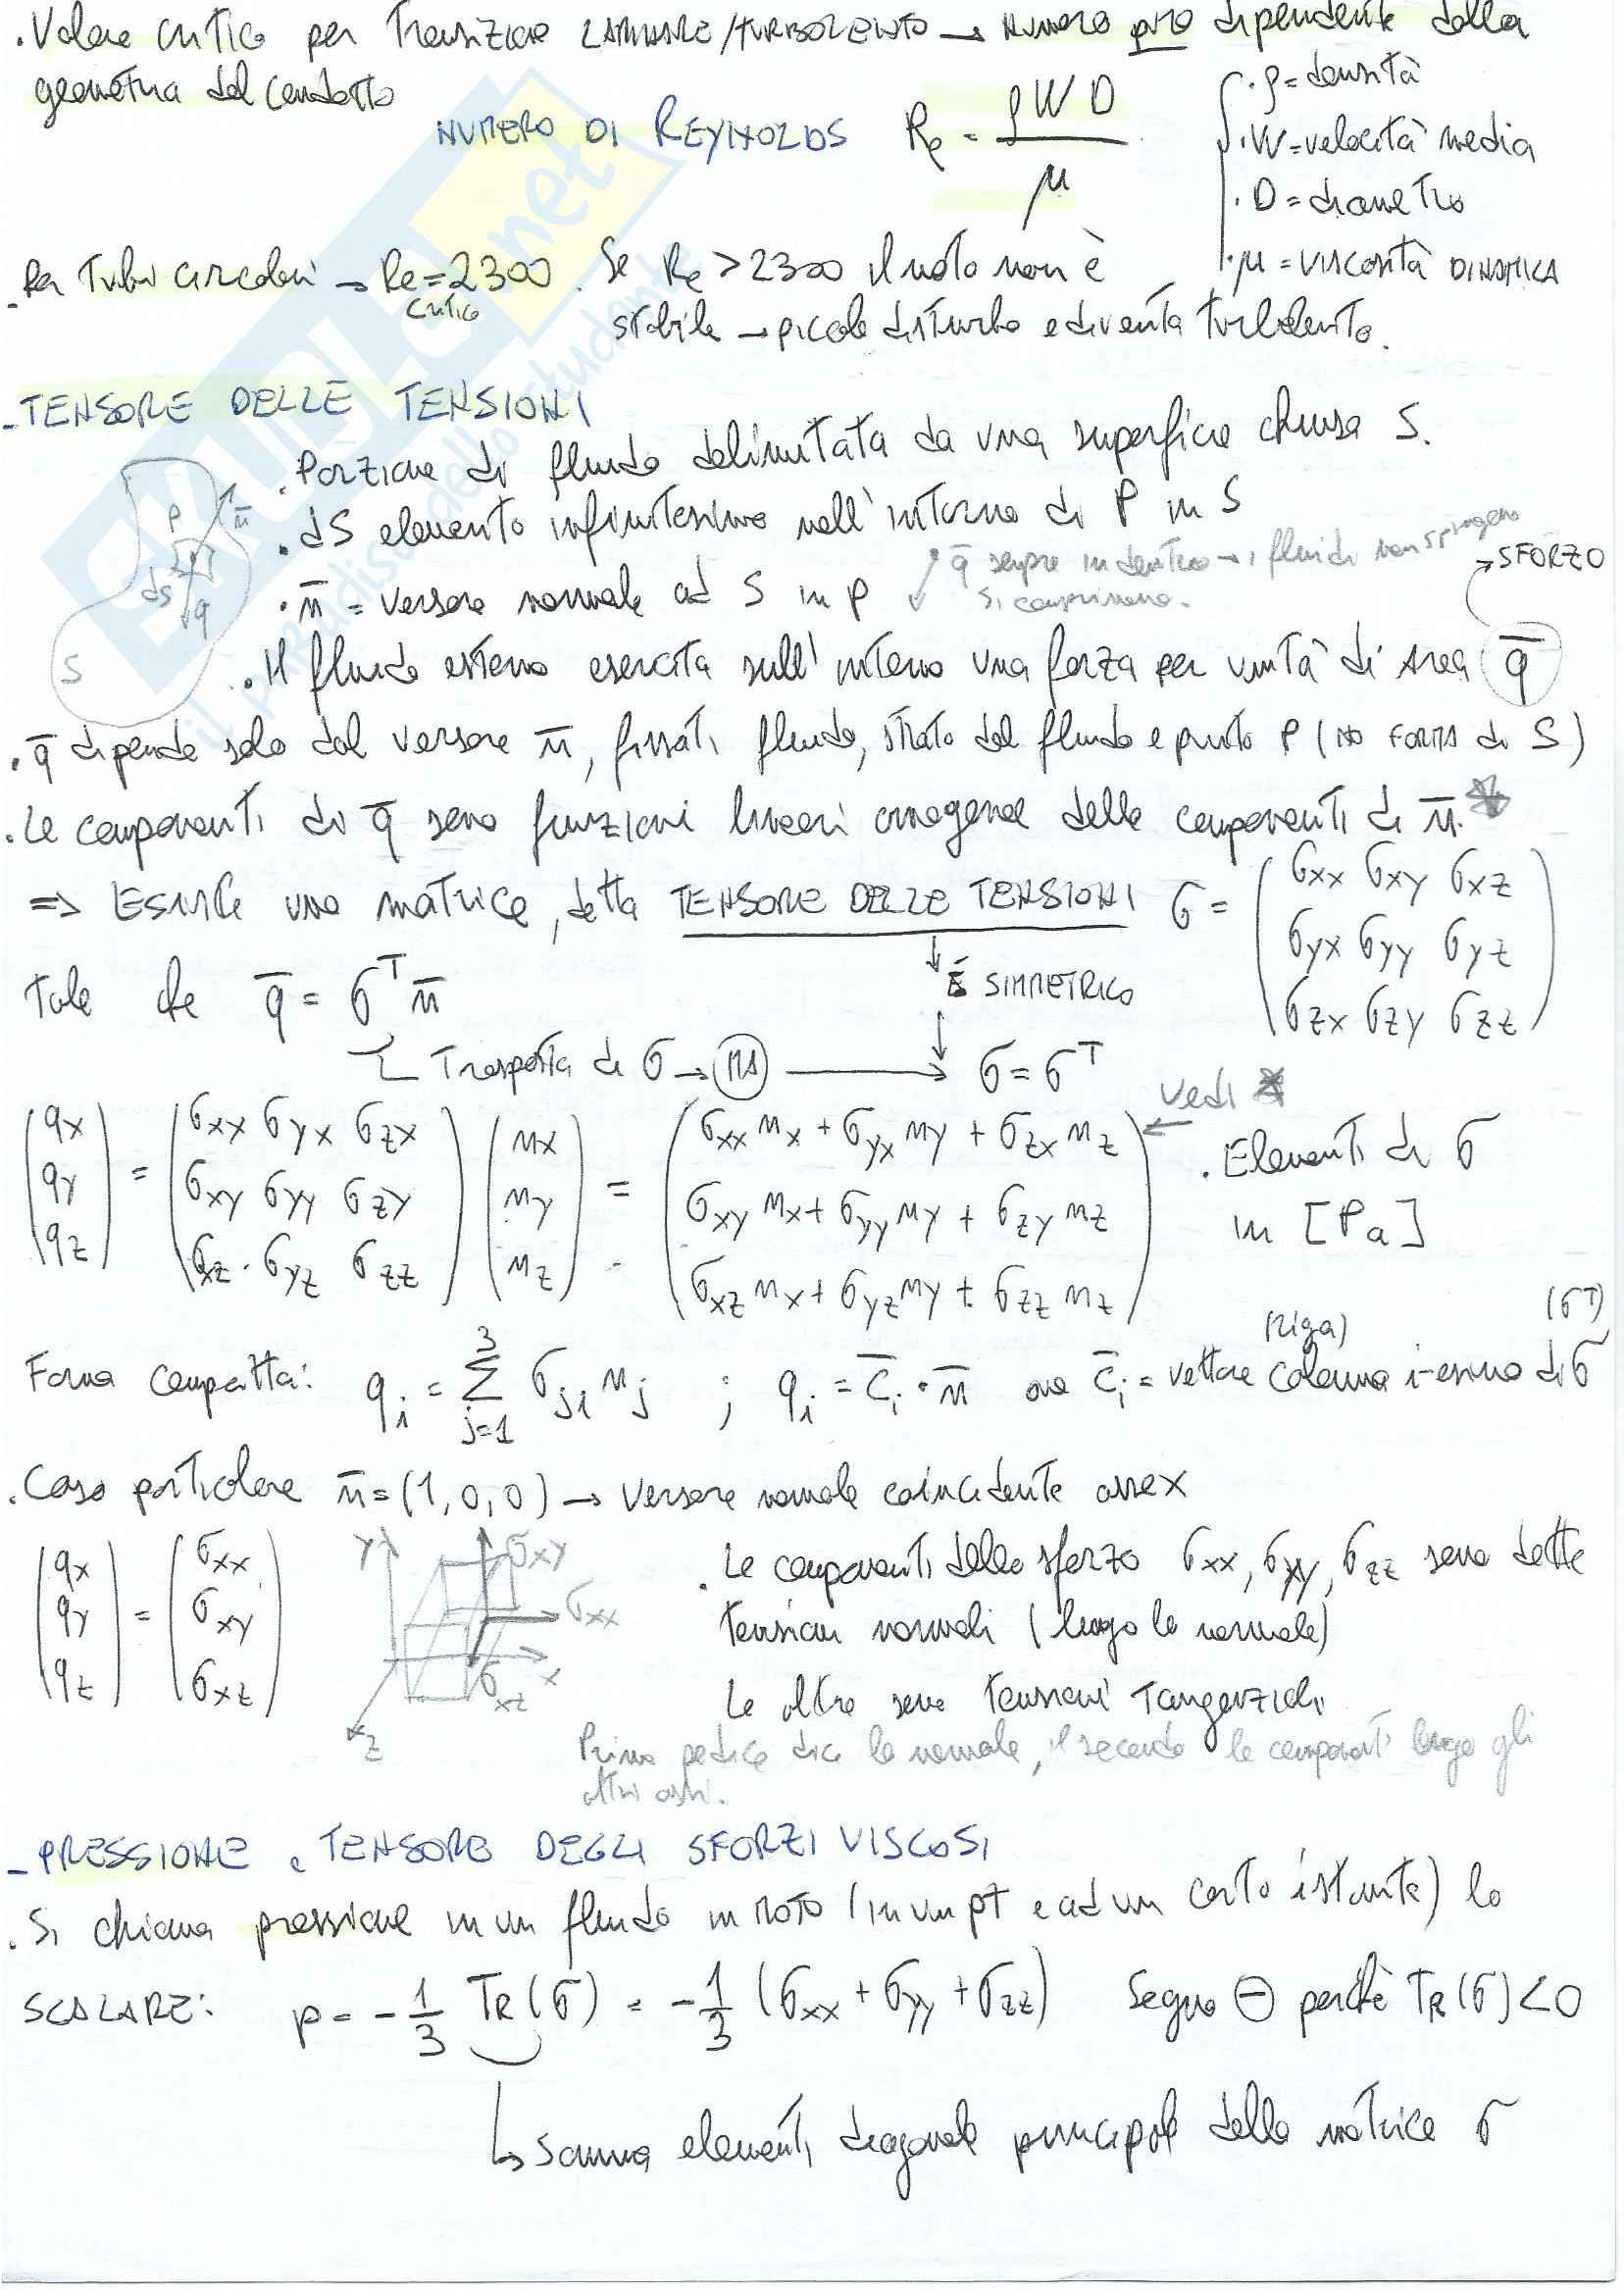 . Valore critico per Transizione LAMINARE/TURBOLENTO → NUMERO puro dipendente dalla
geometria del condotto
NUMERO DI REYNOLDS Re = ρWD / μ
. ρ = densità
. W = velocità media
. D = diametro
. μ = VISCOSITÀ DINAMICA
- Per Tubi circolari → Re critico = 2300. Se Re > 2300 il moto non è
stabile → piccolo disturbo e diventa turbolento.
- TENSORE DELLE TENSIONI
. Porzione di fluido delimitata da una superficie chiusa S.
. dS elemento infinitesimo nell'intorno di P in S
. q̄ sempre in dentro → i fluidi non spingono
si comprimono.
→ SFORZO
. n̄ = versore normale ad S in P
P n̄ dS q̄ S
. Il fluido esterno esercita sull'interno una forza per unità di area q̄
. q̄ dipende solo dal versore n̄, fissati fluido, stato del fluido e punto P (NO FORMA di S)
. Le componenti di q̄ sono funzioni lineari omogenee delle componenti di n̄. *
=> Esiste una matrice, detta TENSORE DELLE TENSIONI σ = ( σxx σxy σxz
σyx σyy σyz
σzx σzy σzz )
Tale che q̄ = σ^T n̄
↓ È SIMMETRICO
Trasposta di σ → → σ = σ^T
( qx ) = ( σxx σyx σzx ) ( nx ) = ( σxx nx + σyx ny + σzx nz ) ← vedi *
( qy ) ( σxy σyy σzy ) ( ny ) ( σxy nx + σyy ny + σzy nz )
( qz ) ( σxz σyz σzz ) ( nz ) ( σxz nx + σyz ny + σzz nz )
. Elementi di σ
in [Pa]
(riga) (σ^T)
Forma compatta: qi = Σ j=1 3 σji nj ; qi = c̄i · n̄ ove c̄i = vettore colonna i-esimo di σ
. Caso particolare n̄ = (1,0,0) → versore normale coincidente asse x
( qx ) = ( σxx )
( qy ) ( σxy )
( qz ) ( σxz )
Y σxy σxx x σxz z
. Le componenti dello sforzo σxx, σyy, σzz sono dette
tensioni normali (lungo la normale)
Le altre sono tensioni Tangenziali
Primo pedice dice la normale, il secondo le componenti lungo gli
altri assi.
- PRESSIONE e TENSORE DEGLI SFORZI VISCOSI
. Si chiama pressione in un fluido in MOTO (in un pt e ad un certo istante) lo
SCALARE: p = - 1/3 TR(σ) = - 1/3 (σxx + σyy + σzz) Segno ⊖ perché TR(σ) < 0
↳ somma elementi diagonale principale della matrice σ